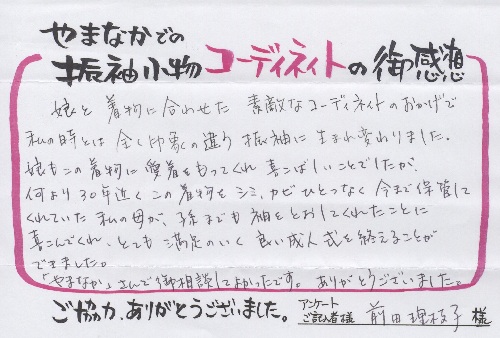 やまなかでの
振袖小物コーディネイトの御感想
娘と着物に合わせた素敵なコーディネイトのおかげで
私の時とは全く印象の違う振袖に生まれ変わりました。
娘もこの着物に愛着をもってくれ喜こばしいことでしたが、
何より30年近くこの着物をシミ、カビひとつなく今まで保管して
くれていた私の母が、孫までも袖をとおしてくれたことに
喜こんでくれ、とても満足のいく良い成人式を終えることが
できました。
「やまなか」さんで御相談してよかったです。ありがとうございました。
ご協力、ありがとうございました。
アンケート
ご記入者様 前田理枝子様